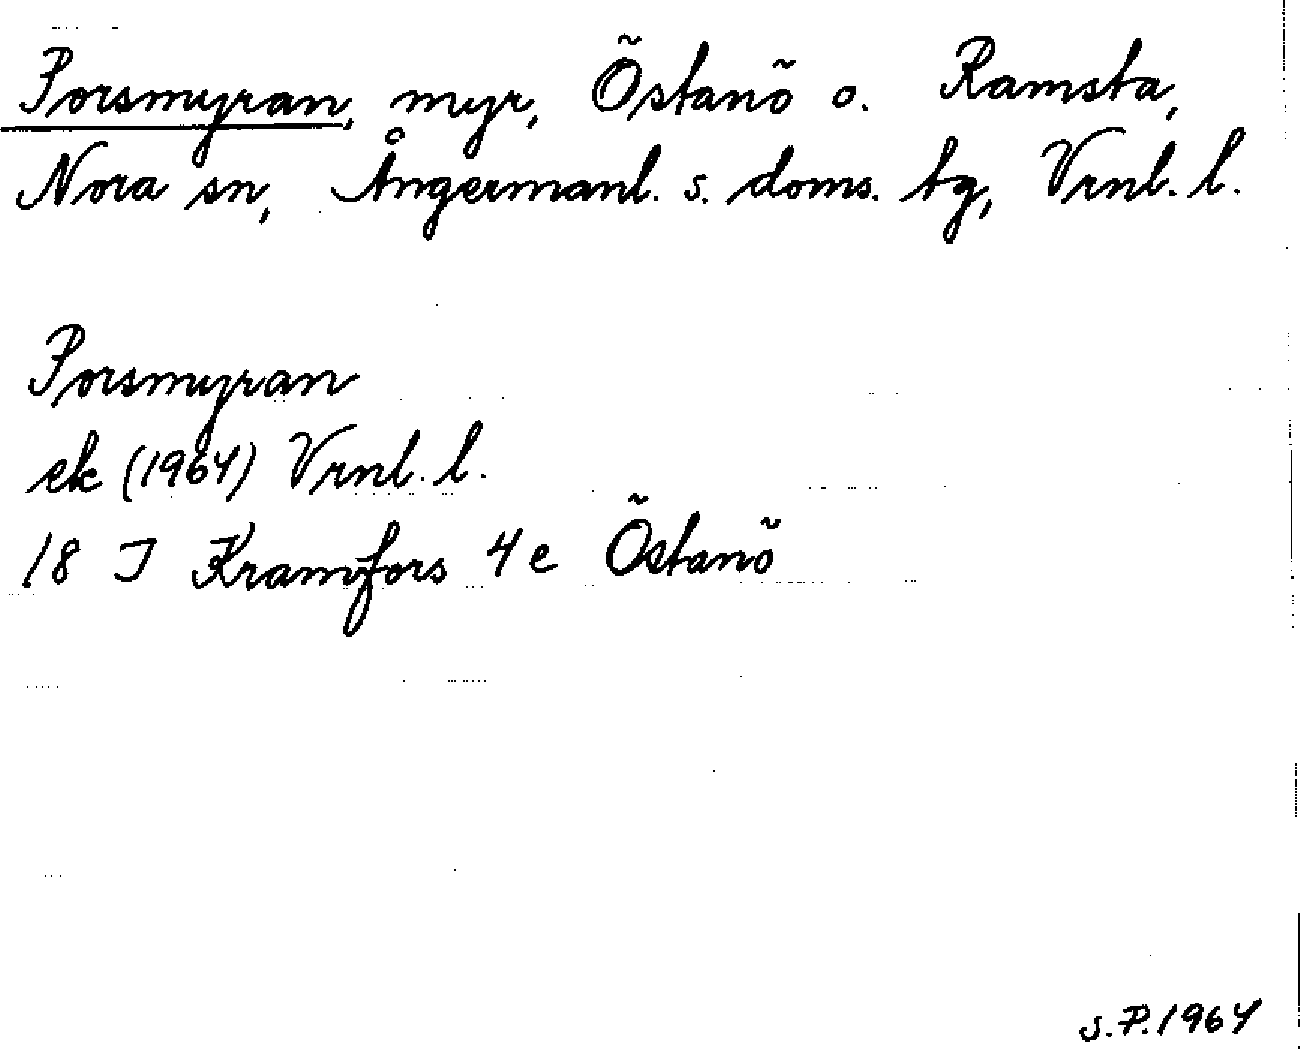 Porsmyran, myr, Östanö o. Ramsta,
Nora sn, Ångermanl. s. doms. tg, Vrnl. l.
Porsmyran
ek (1964) Vrnl. l.
18 J Kramfors 4 e Östanö
S.P. 1964